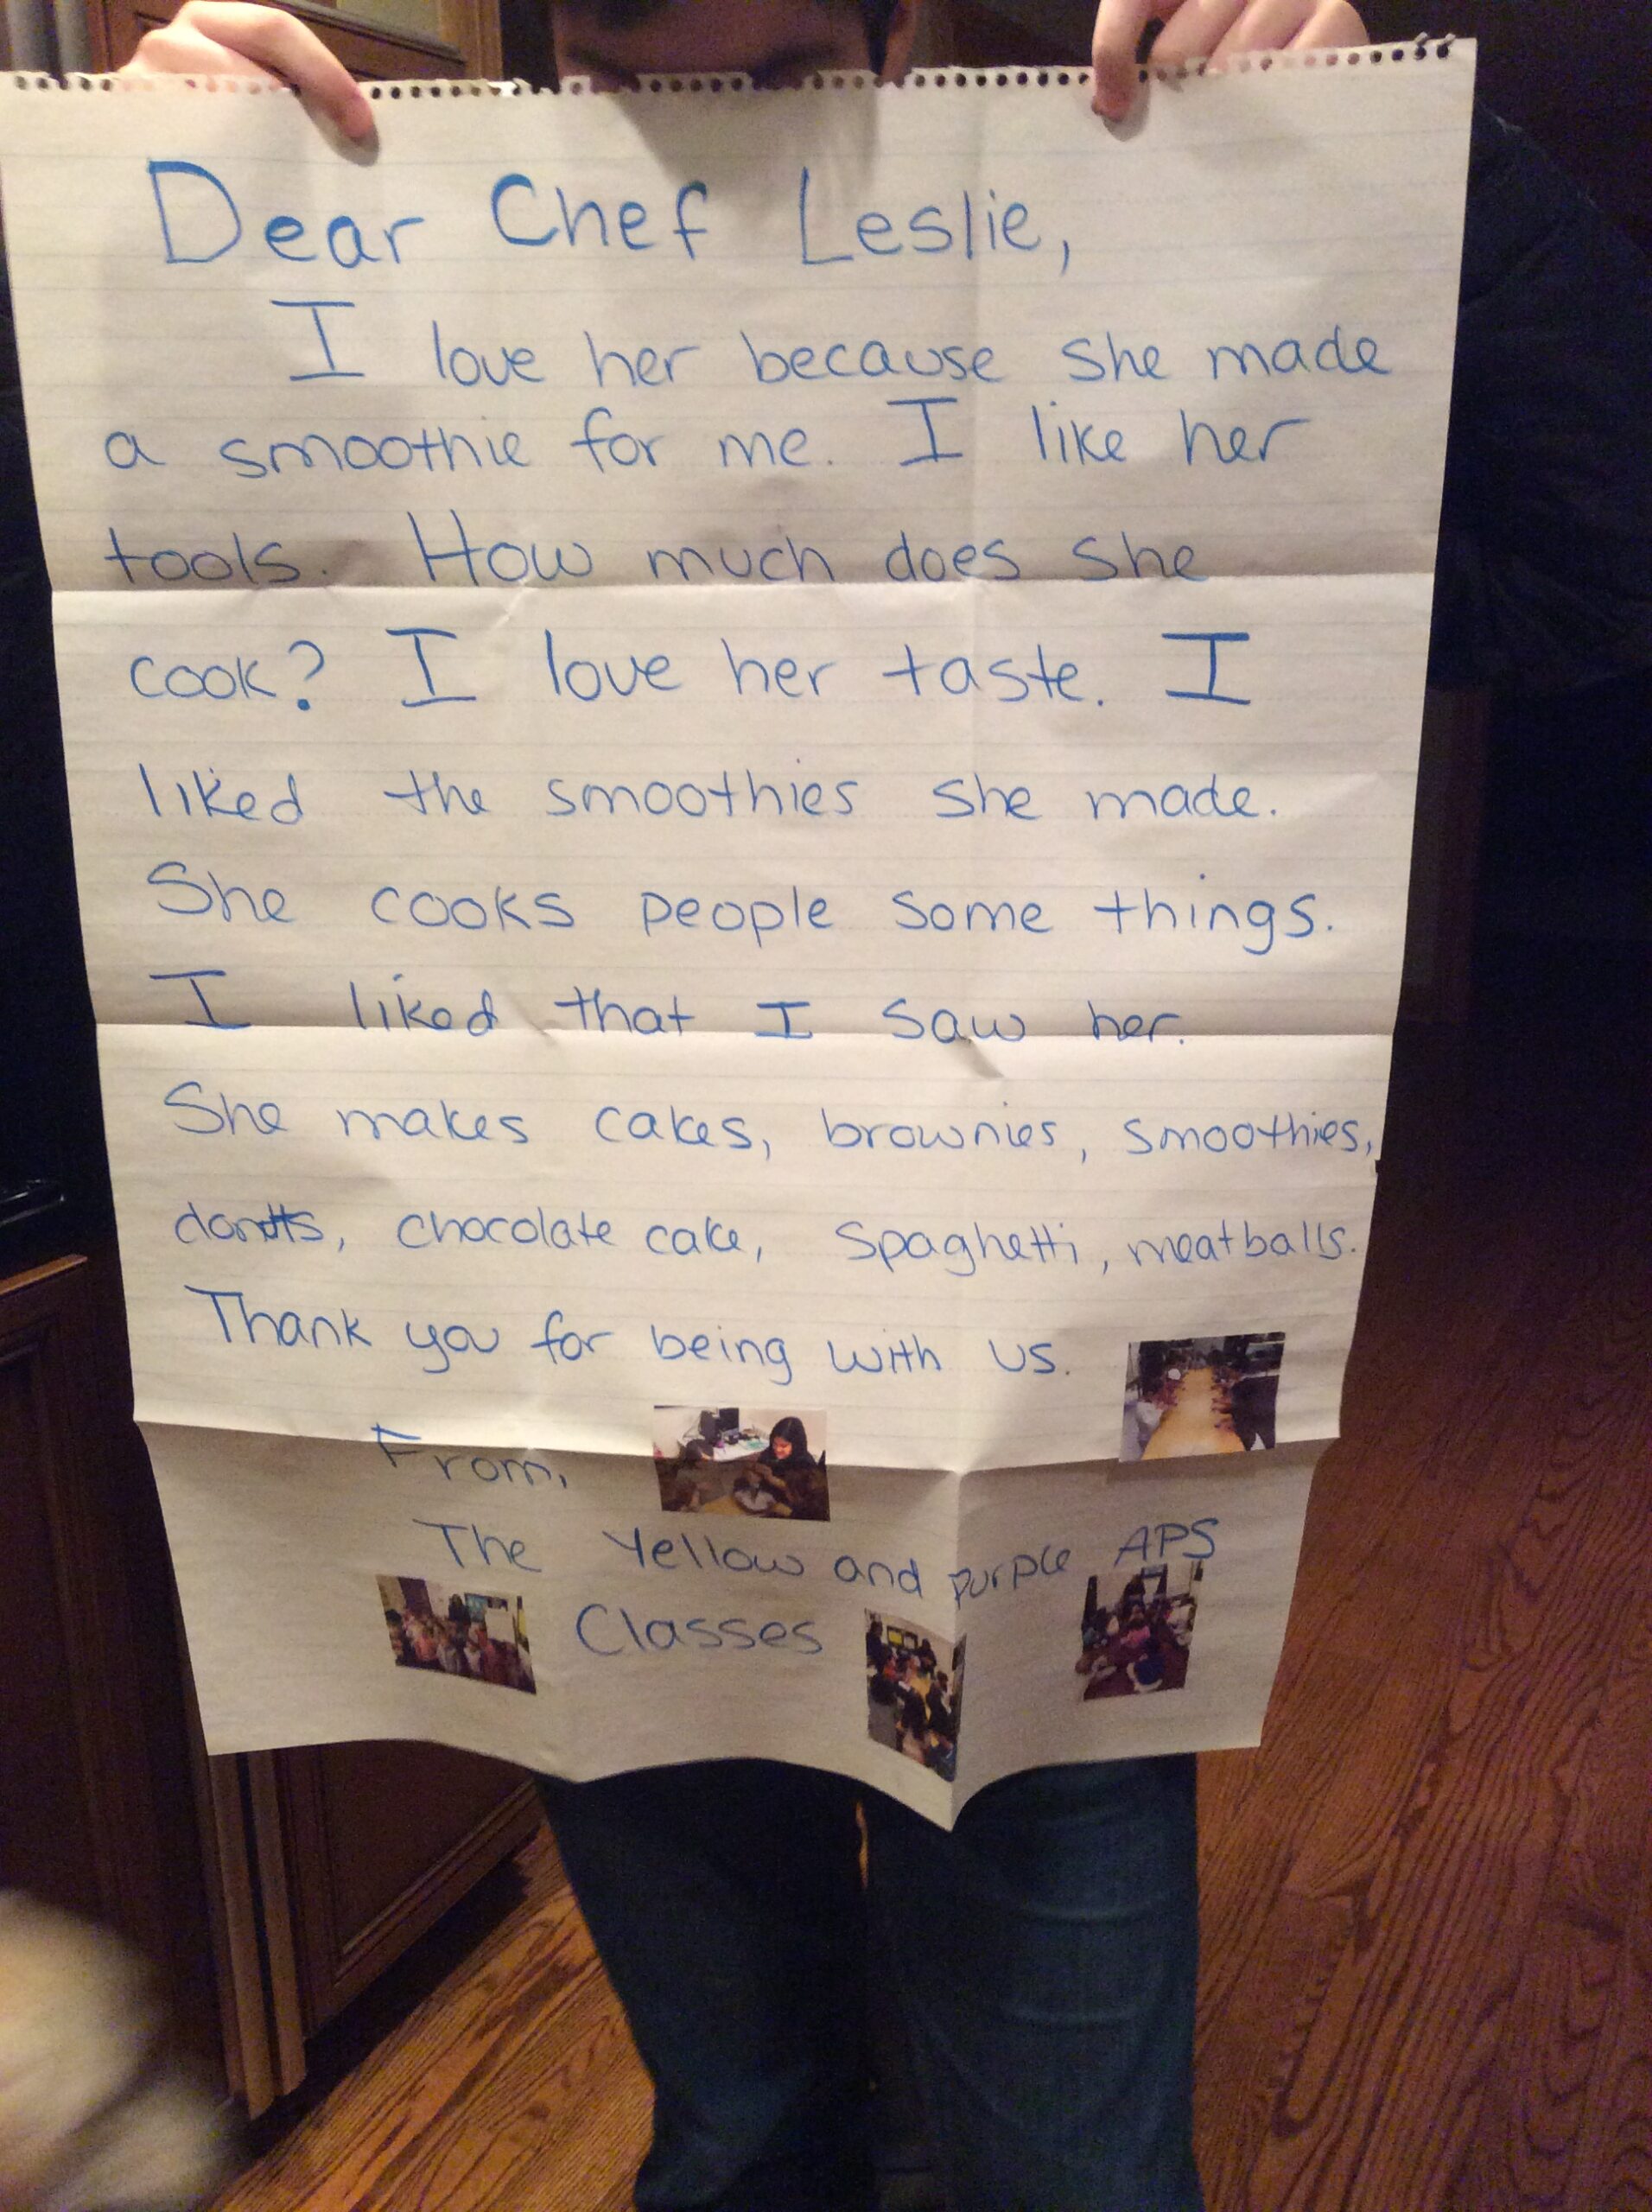 Dear Chef Leslie,
I love her because she made
a smoothie for me. I like her
tools. How much does she
cook? I love her taste. I
liked the smoothies she made.
She cooks people some things.
I liked that I saw her.
She makes cakes, brownies, smoothies,
chocolate cake, spaghetti, meatballs.
Thank you for being with us.
From,
The Yellow and purple APS
Classes